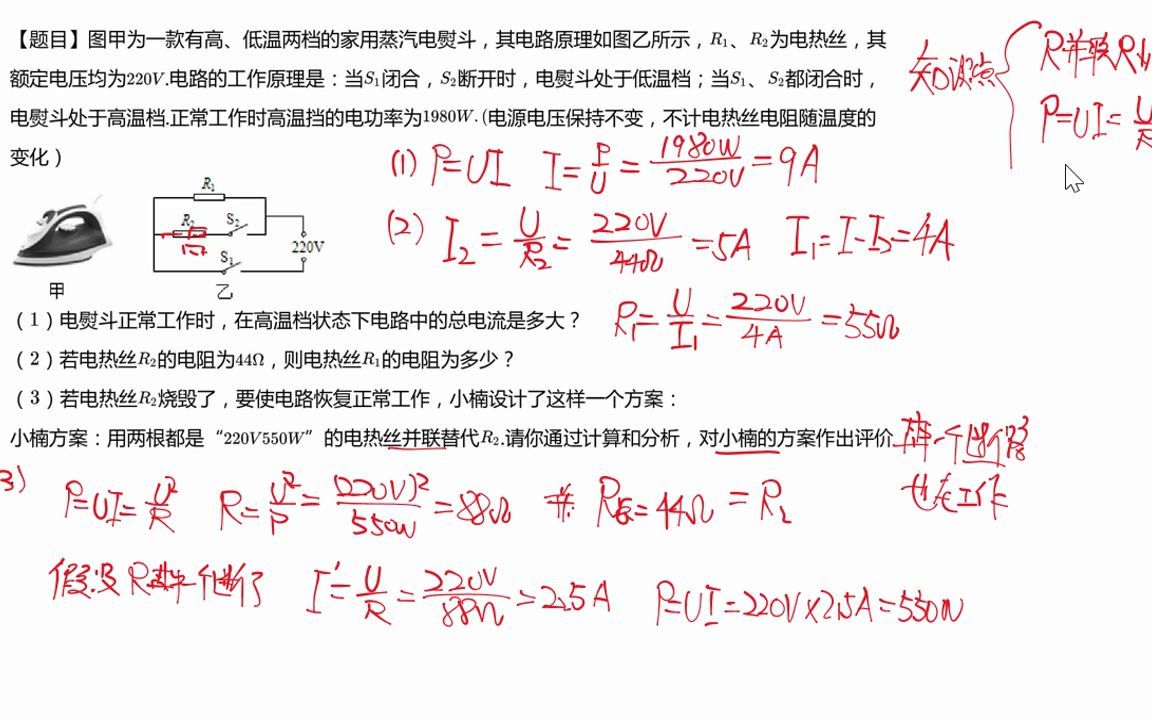 【题目】图甲为一款有高、低温两档的家用蒸汽电熨斗，其电路原理如图乙所示，R₁、R₂为电热丝，其
额定电压均为220V.电路的工作原理是：当S₁闭合，S₂断开时，电熨斗处于低温档；当S₁、S₂都闭合时，
电熨斗处于高温档.正常工作时高温挡的电功率为1980W.(电源电压保持不变，不计电热丝电阻随温度的
变化）
知识点
R并联R
P=UI=U/R
(1) P=UI I=P/U=1980W/220V=9A
(2) I₂=U/R₂=220V/44Ω=5A I₁=I-I₂=4A
R₁=U/I₁=220V/4A=55Ω
R₁
R₂
S₂
220V
S₁
甲
乙
（1）电熨斗正常工作时，在高温档状态下电路中的总电流是多大？
（2）若电热丝R₂的电阻为44Ω，则电热丝R₁的电阻为多少？
（3）若电热丝R₂烧毁了，要使电路恢复正常工作，小楠设计了这样一个方案：
小楠方案：用两根都是“220V550W”的电热丝并联替代R₂.请你通过计算和分析，对小楠的方案作出评价
其中一个断路
也在工作
3) P=UI=U²/R R=U²/P=(220V)²/550W=88Ω 并 R总=44Ω=R₂
假设R其中一个断了 I'=U/R=220V/88Ω=2.5A P=UI=220V×2.5A=550W